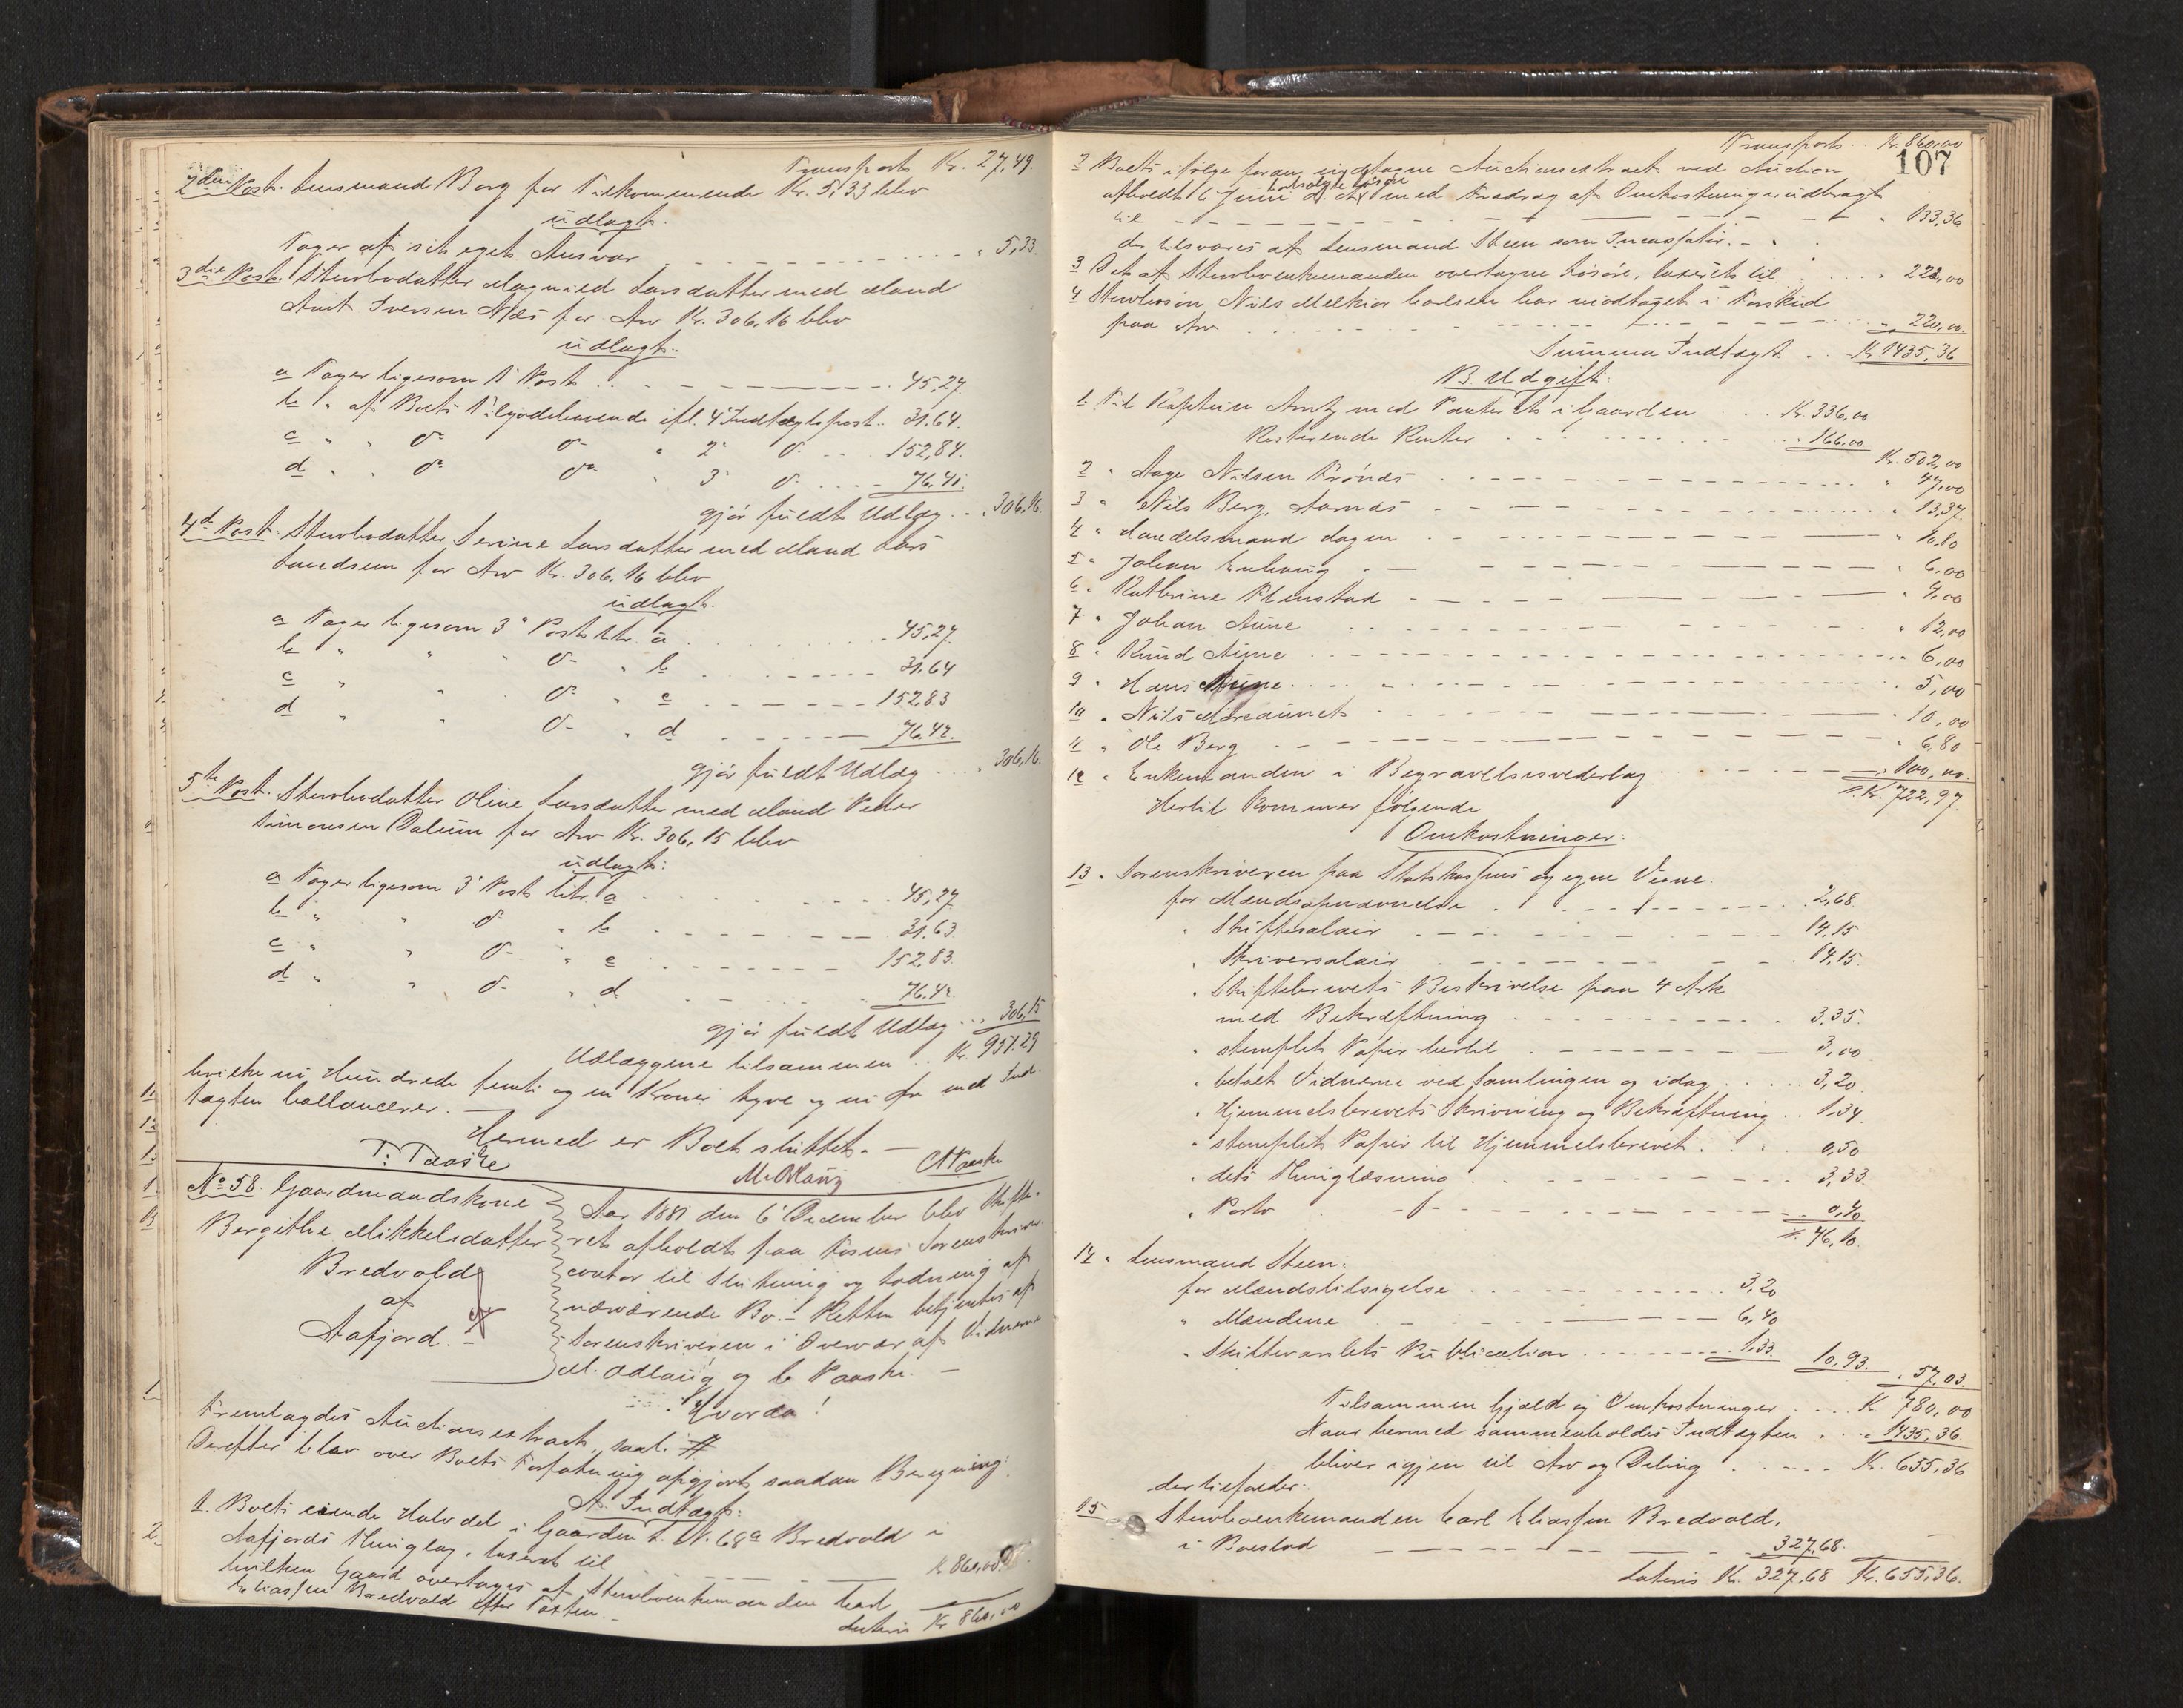 Transport Kr. 27,49.
2den Post. Lensmand Borg for Tilkommende Kr. 5,33 blev
udlagt.
Tager af sit eget Ansvar " 5,33.
3die Post. Stervbodatter Magnild Larsdatter med Mand
Arnt Iversen Næs for Arv Kr. 306,16 blev
udlagt.
a Tager ligesom 1' Post 45,27.
b " af Boets Tilgodehavende ifl. 4' Indtægtspost 31.64.
c " " do do " 2' do 152,84.
d " " do do " 3' do 76.41.
gjør fuldt Udlæg " 306,16.
4de Post. Stervbodatter Serine Larsdatter med Mand Lars
for Arv Kr. 306,16 blev
udlagt.
a Tager ligesom 3' Post litr. a 45,27.
b " " do " b 31.64
c " " do " c 152,83
d " " do " d 76.42.
gjør fuldt Udlæg " 306,16.
5te Post. Stervbodatter Oline Larsdatter med Mand Peder
Simonsen Dalum for Arv Kr. 306,15 blev
udlagt:
a Tager ligesom 3' Post litr. a 45,27
b " " do " b 31.63
c " " do " c 152,83.
d " " do " d 76.42.
gjør fuldt Udlæg 306,15
Udlæggene tilsammen Kr. 951.29
hvilke ni Hundrede femti og en Kroner tyve og ni Øre med Ind-
tægten ballancerer.
Hermed er Boet sluttet. —
No 58. Gaardmandskone
Bergithe Mikkelsdatter
Bredvold
af
Aafjord. —
Aar 1881 den 6' December blev Skifte-
ret afholdt paa Fosens Sorenskriver-
contor til Slutning og Lodning af
nærværende Bo. — Retten betjentes af
Sorenskriveren i Overvær af Vidnerne
M. Ødlaug og C. Paaske. —
Hvorda!
Fremlagdes Auctionsextract, saal. #
Derefter blev over Boets Forfatning afgjort saadan Beregning:
A. Indtægt:
1. Boets eiende Halvdel i Gaarden L. N. 68a Bredvold i
Aafjords Thinglag, taxeret til Kr 860,00
hvilken Gaard overtages af Stervboenkemanden Carl
Eliassen Bredvold efter Taxten. —
Lateris Kr 860,00
Transport Kr. 860,00
107
2 Boets ifølge foran Auctionsextract ved Auction
afholdt 6 Juni d. A. solgte Løsøre med Fradrag af Omkostninger udbragt
til " 133,36
der tilsvares af Lensmand Steen som Incassator. —
3 Det af Stervboenkemanden overtagne Løsøre, taxeret til " 222,00
4 Stervbosøn Nils Melkior Carlsen har modtaget i Forskud
paa Arv " 220,00.
Summa Indtægt Kr 1435,36
B. Udgift:
1 Til Kaptein Arntz med Panteret i Gaarden Kr. 336,00
Resterende Renter 166,00
Kr. 502,00
2 " Aage Nilsen " 47,00
3 " Nils Berg, Aarnæs " 13,37.
4 " Handelsmand Hagen " 10.80
5 " Johan " 6,00
6 " Kathrine " 4,00
7 " Johan Aune " 12,00
8 " Knud Aune " 6,00
9 " Hans Aune " 5,00
10 " Nils " 10,00
11 " Ole Berg " 6,80
12 " Enkemanden i Begravelsesvederlag " 100,00.
Kr. 722,97.
Hertil kommer følgende
Omkostninger:
13 " Sorenskriveren paa Statskassens og egne Vegne:
for Mændsopnævnelse 2,68
" Skiftesalair 14,15
" Skriversalair 14,15.
" Skiftebrevets Beskrivelse paa 4 Ark
med Bekræftning 3,35.
" stemplet Papir hertil 3,00
" betalt Vidnerne ved Samlingen og idag 3,20
" Hjemmelsbrevets Skrivning og Bekræftning 1.34
" stemplet Papir til Hjemmelsbrevet 0,50
" dets Thinglæsning 3,33.
" Porto 0,40
46,10.
14 " Lensmand Steen:
for Mændstilsigelse 3,20
" Mændene 6,40
" Skiftevarslets Publication 1.33
10,93. " 57,03.
Tilsammen Gjæld og Omkostninger Kr. 780,00
Naar hermed sammenholdes Indtægten " 1435,36.
bliver igjen til Arv og Deling Kr. 655,36
der tilfalder:
15 Stervboenkemanden Carl Eliassen Bredvold,
i Boeslod 327,68.
Lateris Kr. 327,68 Kr. 655,36.